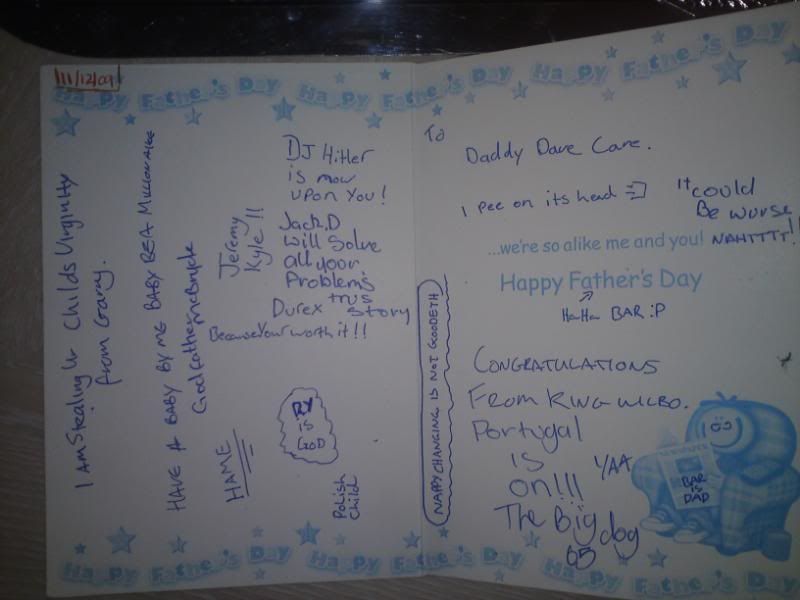 11/12/09
Happy Father's Day Happy Father's Day
I AM Stealing Ur Childs Virginity
from Garry.
HAVE A BABY BY ME BABY BE A MILLIONAIRE
Jeremy
Kyle!!
HAME
DJ Hitler
is now
upon you!
Jack.D
will solve
all your
Problems
Durex trus story
Because your worth it!!
is
GOD
Polish
Child
Happy Father's Day Happy Father's Day
Happy Father's Day Happy Father's Day
To
Daddy Dave Care.
I pee on its head =]
It could
Be worse
...we're so alike me and you! NAHTTTT!!
Happy Father's Day
HaHa BAR :P
NAPPY CHANGING IS NOT GOODETH
CONGRATULATIONS
FROM KING WILBO.
Portugal
is
on!!! YAA
The Big dog
05
BAR
IS
DAD
Happy Father's Day Happy Father's Day